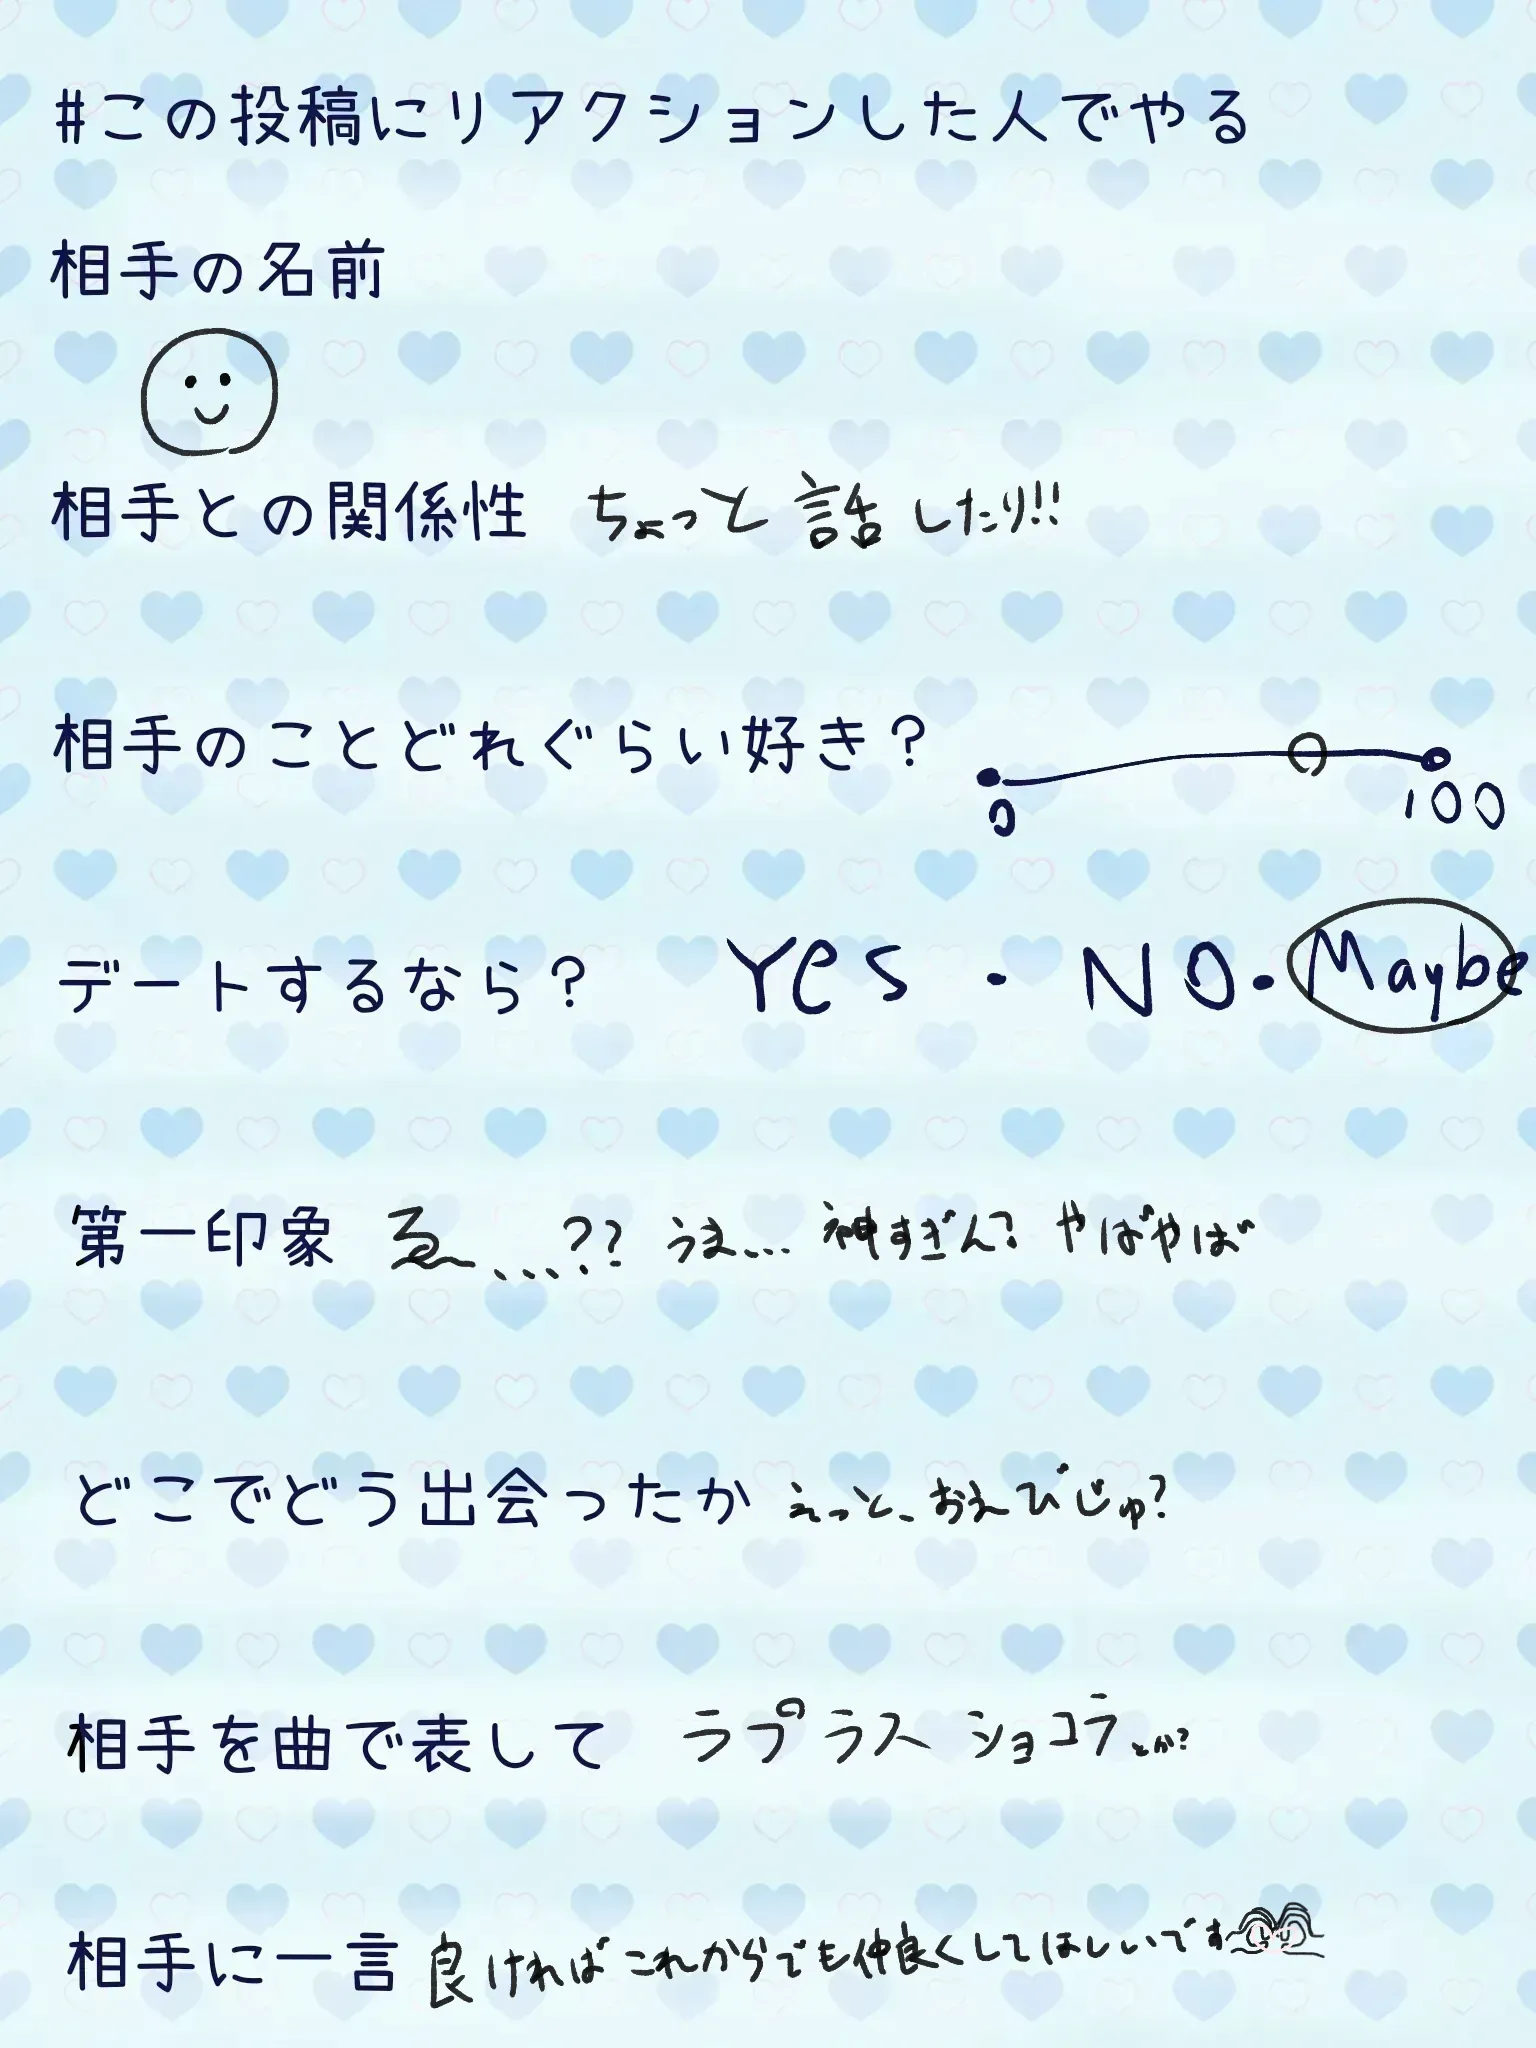 #この投稿にリアクションした人でやる
相手の名前
相手との関係性 ちょっと話したり!!
相手のことどれぐらい好き?
0 100
デートするなら? Yes・NO・Maybe
第一印象 る〜、、、、?? うま… 神すぎん? やばやば
どこでどう出会ったか えっと、おえびじゅ?
相手を曲で表して ラプラス ショコラとか?
相手に一言 良ければこれからでも仲良くしてほしいです